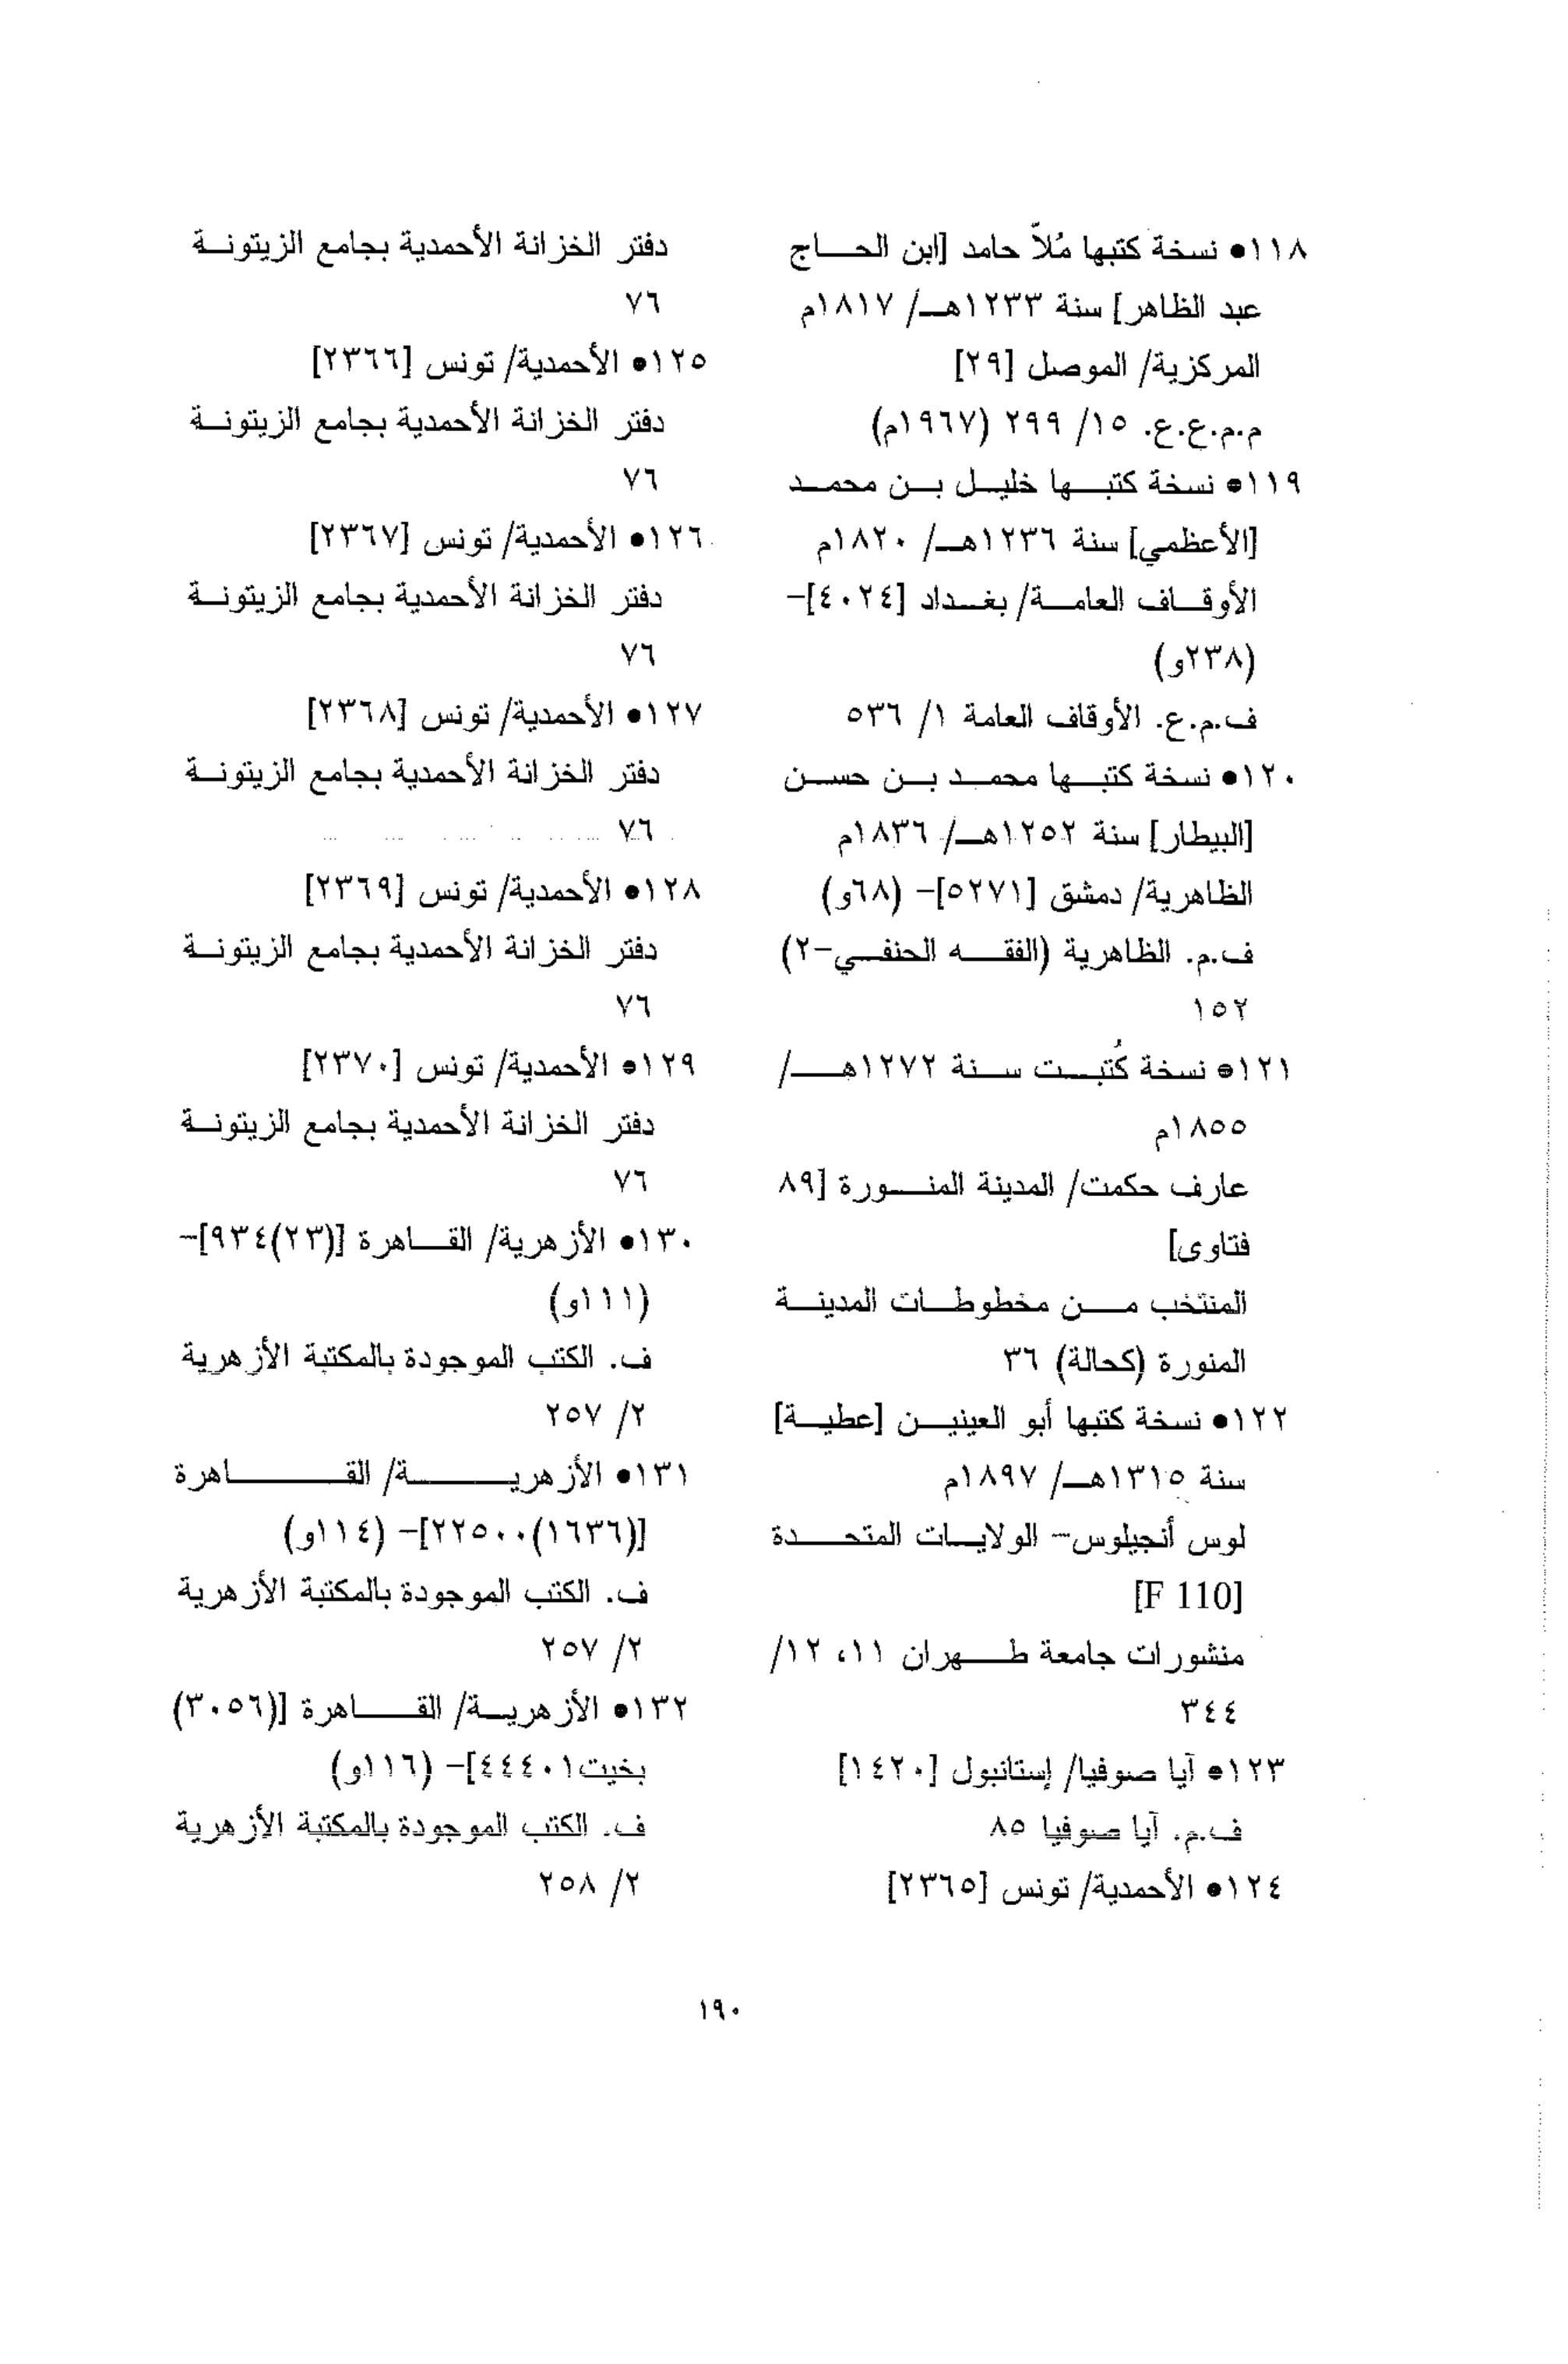 ١١٨● نسخة كتبها مُلاّ حامد [ابن الحاج
عبد الظاهر] سنة ١٢٣٣هـ/ ١٨١٧م
المركزية/ الموصل [٢٩]
م.م.ع.ع. ١٥/ ٢٩٩ (١٩٦٧م)
١١٩● نسخة كتبها خليل بن محمد
[الأعظمي] سنة ١٢٣٦هـ/ ١٨٢٠م
الأوقاف العامة/ بغداد [٤٠٢٤]-
(٢٣٨و)
ف.م.ع. الأوقاف العامة ١/ ٥٣٦
١٢٠● نسخة كتبها محمد بن حسن
[البيطار] سنة ١٢٥٢هـ/ ١٨٣٦م
الظاهرية/ دمشق [٥٢٧١]- (٦٨و)
ف.م. الظاهرية (الفقه الحنفي-٢)
١٥٢
١٢١● نسخة كُتبت سنة ١٢٧٢هـ/
١٨٥٥م
عارف حكمت/ المدينة المنورة [٨٩
فتاوى]
المنتخب من مخطوطات المدينة
المنورة (كحالة) ٣٦
١٢٢● نسخة كتبها أبو العينين [عطية]
سنة ١٣١٥هـ/ ١٨٩٧م
لوس أنجيلوس- الولايات المتحدة
[F 110]
منشورات جامعة طهران ١١، ١٢/
٣٤٤
١٢٣● آيا صوفيا/ إستانبول [١٤٢٠]
ف.م. آيا صوفيا ٨٥
١٢٤● الأحمدية/ تونس [٢٣٦٥]
دفتر الخزانة الأحمدية بجامع الزيتونة
٧٦
١٢٥● الأحمدية/ تونس [٢٣٦٦]
دفتر الخزانة الأحمدية بجامع الزيتونة
٧٦
١٢٦● الأحمدية/ تونس [٢٣٦٧]
دفتر الخزانة الأحمدية بجامع الزيتونة
٧٦
١٢٧● الأحمدية/ تونس [٢٣٦٨]
دفتر الخزانة الأحمدية بجامع الزيتونة
٧٦
١٢٨● الأحمدية/ تونس [٢٣٦٩]
دفتر الخزانة الأحمدية بجامع الزيتونة
٧٦
١٢٩● الأحمدية/ تونس [٢٣٧٠]
دفتر الخزانة الأحمدية بجامع الزيتونة
٧٦
١٣٠● الأزهرية/ القاهرة [(٢٣)٩٣٤]-
(١١١و)
ف. الكتب الموجودة بالمكتبة الأزهرية
٢/ ٢٥٧
١٣١● الأزهرية/ القاهرة
[(١٦٣٦)٢٢٥٠٠]- (١١٤و)
ف. الكتب الموجودة بالمكتبة الأزهرية
٢/ ٢٥٧
١٣٢● الأزهرية/ القاهرة [(٣٠٥٦)
بخيت٤٤٤٠١]- (١١٦و)
ف. الكتب الموجودة بالمكتبة الأزهرية
٢/ ٢٥٨
١٩٠